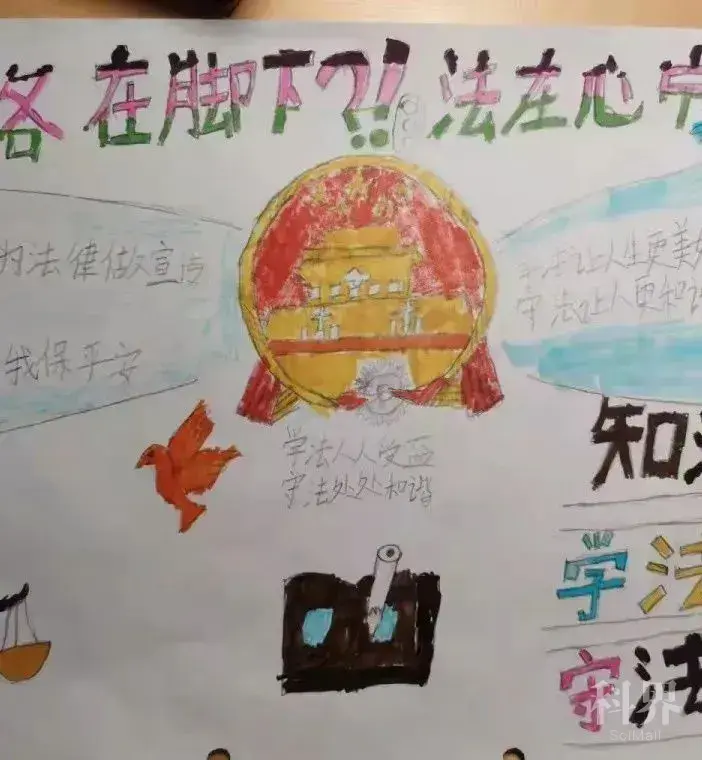 路 在脚下?!法在心中
为法律做宣传
我保平安
学法让人生更美好
守法让人更和谐
学法人人受益
守法处处和谐
知法
学法
守法
科界
SciMall